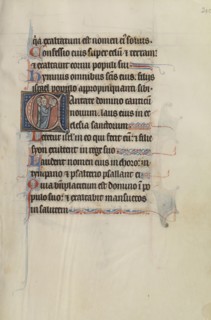 q̄a exaltatum est nomen eiꝰ solius.
Confessio eius super celum & terram:
& exaltauit cornu populi sui.
Hymnus omnibus sanctis eius: filiis
israel populo appropinquanti sibi.
Cantate domino canticū
nouum: laus eius in ec
clesia sanctorum.
Letetur isrl' in eo qui fecit eū: & filie
syon exultent in rege suo.
Laudent nomen eius in choro: in
tympano & psalterio psallant ei.
Quia bn̄placitum est domino in po
pulo suo: & exaltabit mansuetos
in salutem